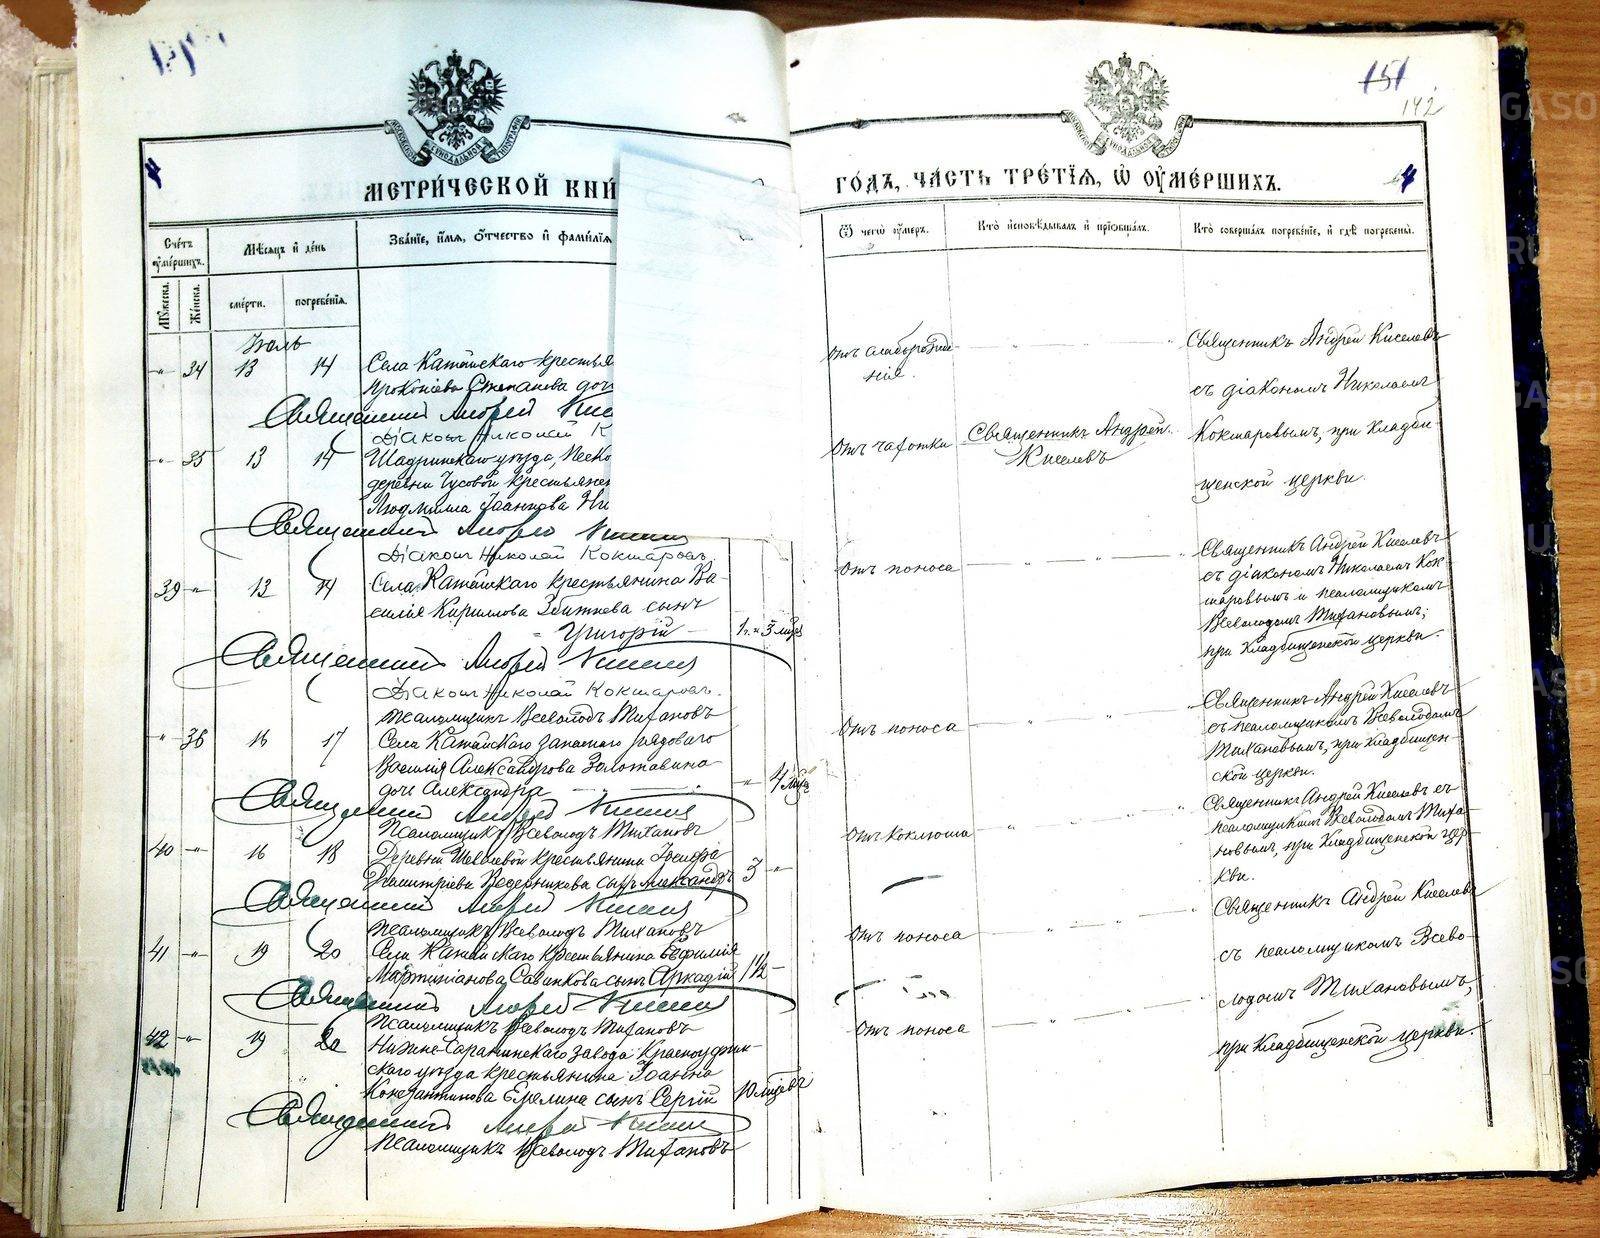 151
142
МЕТРИ́ЧЕСКОЙ КНИ́
ГО́ДЪ, ЧА́СТЬ ТРЕ́ТІЯ, Ѿ ОУМЕ́РШИХЪ.
4
4
Счетъ оумершихъ.
Мѣсяцъ и день
Званіе, имя, отчество и фамилія
Мужеска.
Женска.
смерти.
погребенія.
Ѿ чегѡ оумеръ.
Кто исповѣдывалъ и пріобщалъ.
Кто совершалъ погребеніе, и гдѣ погребены.
Іюль
34 13 14 Села Катайскаго крестья
Прокопіева Степанова доч
Священникъ Андрей Кис
Діаконъ Николай К
35 13 14 Шадринскаго уѣзда, Песко
деревни Чусовой крестьянск
Людмила Іоаннова Ни
Священникъ Андрей Киселевъ
Діаконъ Николай Кокшаровъ.
39 13 14 Села Катайскаго крестьянина Ва-
силія Кириллова сынъ
Григорій
Священникъ Андрей Киселевъ
Діаконъ Николай Кокшаровъ.
псаломщикъ Всеволодъ Тихановъ
36 16 17 Села Катайскаго запаснаго рядоваго
Василія Александрова Золотавина
дочь Александра
Священникъ Андрей Киселевъ
Псаломщикъ Всеволодъ Тихановъ
40 16 18 Деревни Шевелевой крестьянина Іосифа
Димитріева Ведерникова сынъ Александръ 3
Священникъ Андрей Киселевъ
Псаломщикъ Всеволодъ Тихановъ
41 19 20 Села Катайскаго крестьянина Евфимія
Мартиніанова сынъ Аркадій 1½
Священникъ Андрей Киселевъ
Псаломщикъ Всеволодъ Тихановъ
42 19 20 Нижне-Саранинскаго завода Красноуфим-
скаго уѣзда крестьянина Іоанна
Константинова сынъ Сергій
Священникъ Андрей Киселевъ
Псаломщикъ Всеволодъ Тихановъ
Отъ слаборожде
нія.
Священникъ Андрей Киселевъ
съ діакономъ Николаемъ
Отъ чахотки Священникъ Андрей
Киселевъ
Кокшаровымъ, при кладби-
щенской церкви.
Отъ поноса
Священникъ Андрей Киселевъ
съ діакономъ Николаемъ Кок-
шаровымъ и псаломщикомъ
Всеволодомъ Тихановымъ,
при кладбищенской церкви.
Отъ поноса
Священникъ Андрей Киселевъ
съ псаломщикомъ Всеволодомъ
Тихановымъ, при кладбищен-
ской церкви.
Отъ коклюша
Священникъ Андрей Киселевъ съ
псаломщикомъ Всеволодомъ Тиха-
новымъ, при кладбищенской цер-
кви.
Отъ поноса
Священникъ Андрей Киселевъ
съ псаломщикомъ Всево-
лодомъ Тихановымъ,
Отъ поноса
при кладбищенской церкви.